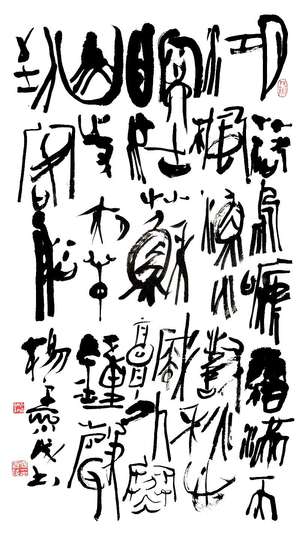 月落烏啼霜滿天
江楓漁火對愁
眠姑蘇城外寒
山寺夜半鐘聲
到客船
楊